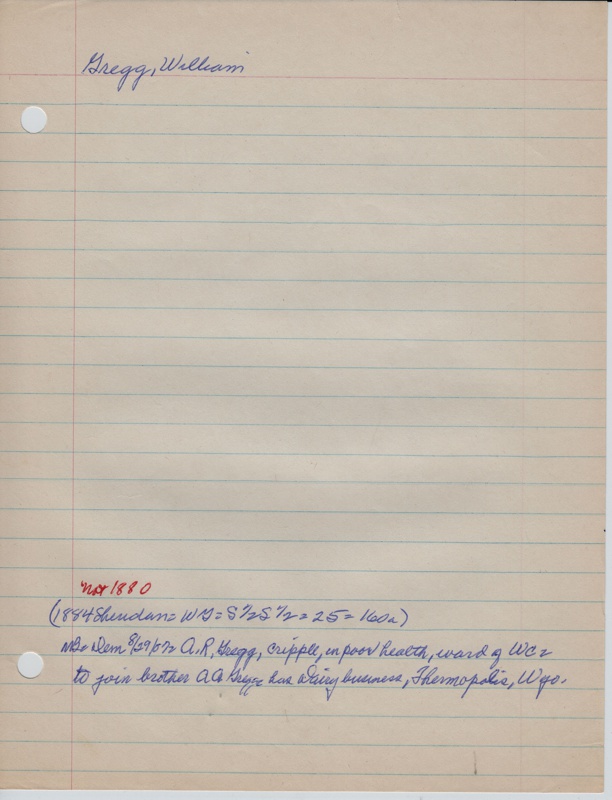 Gregg, William
not 1880
(1884 Sheridan = WG = S½S½ = 25 = 160a)
Dem 8/29/07= A.R. Gregg, cripple, in poor health, ward of WC=
to join brother AA Gregg= has Dairy business, Thermopolis, Wyo.